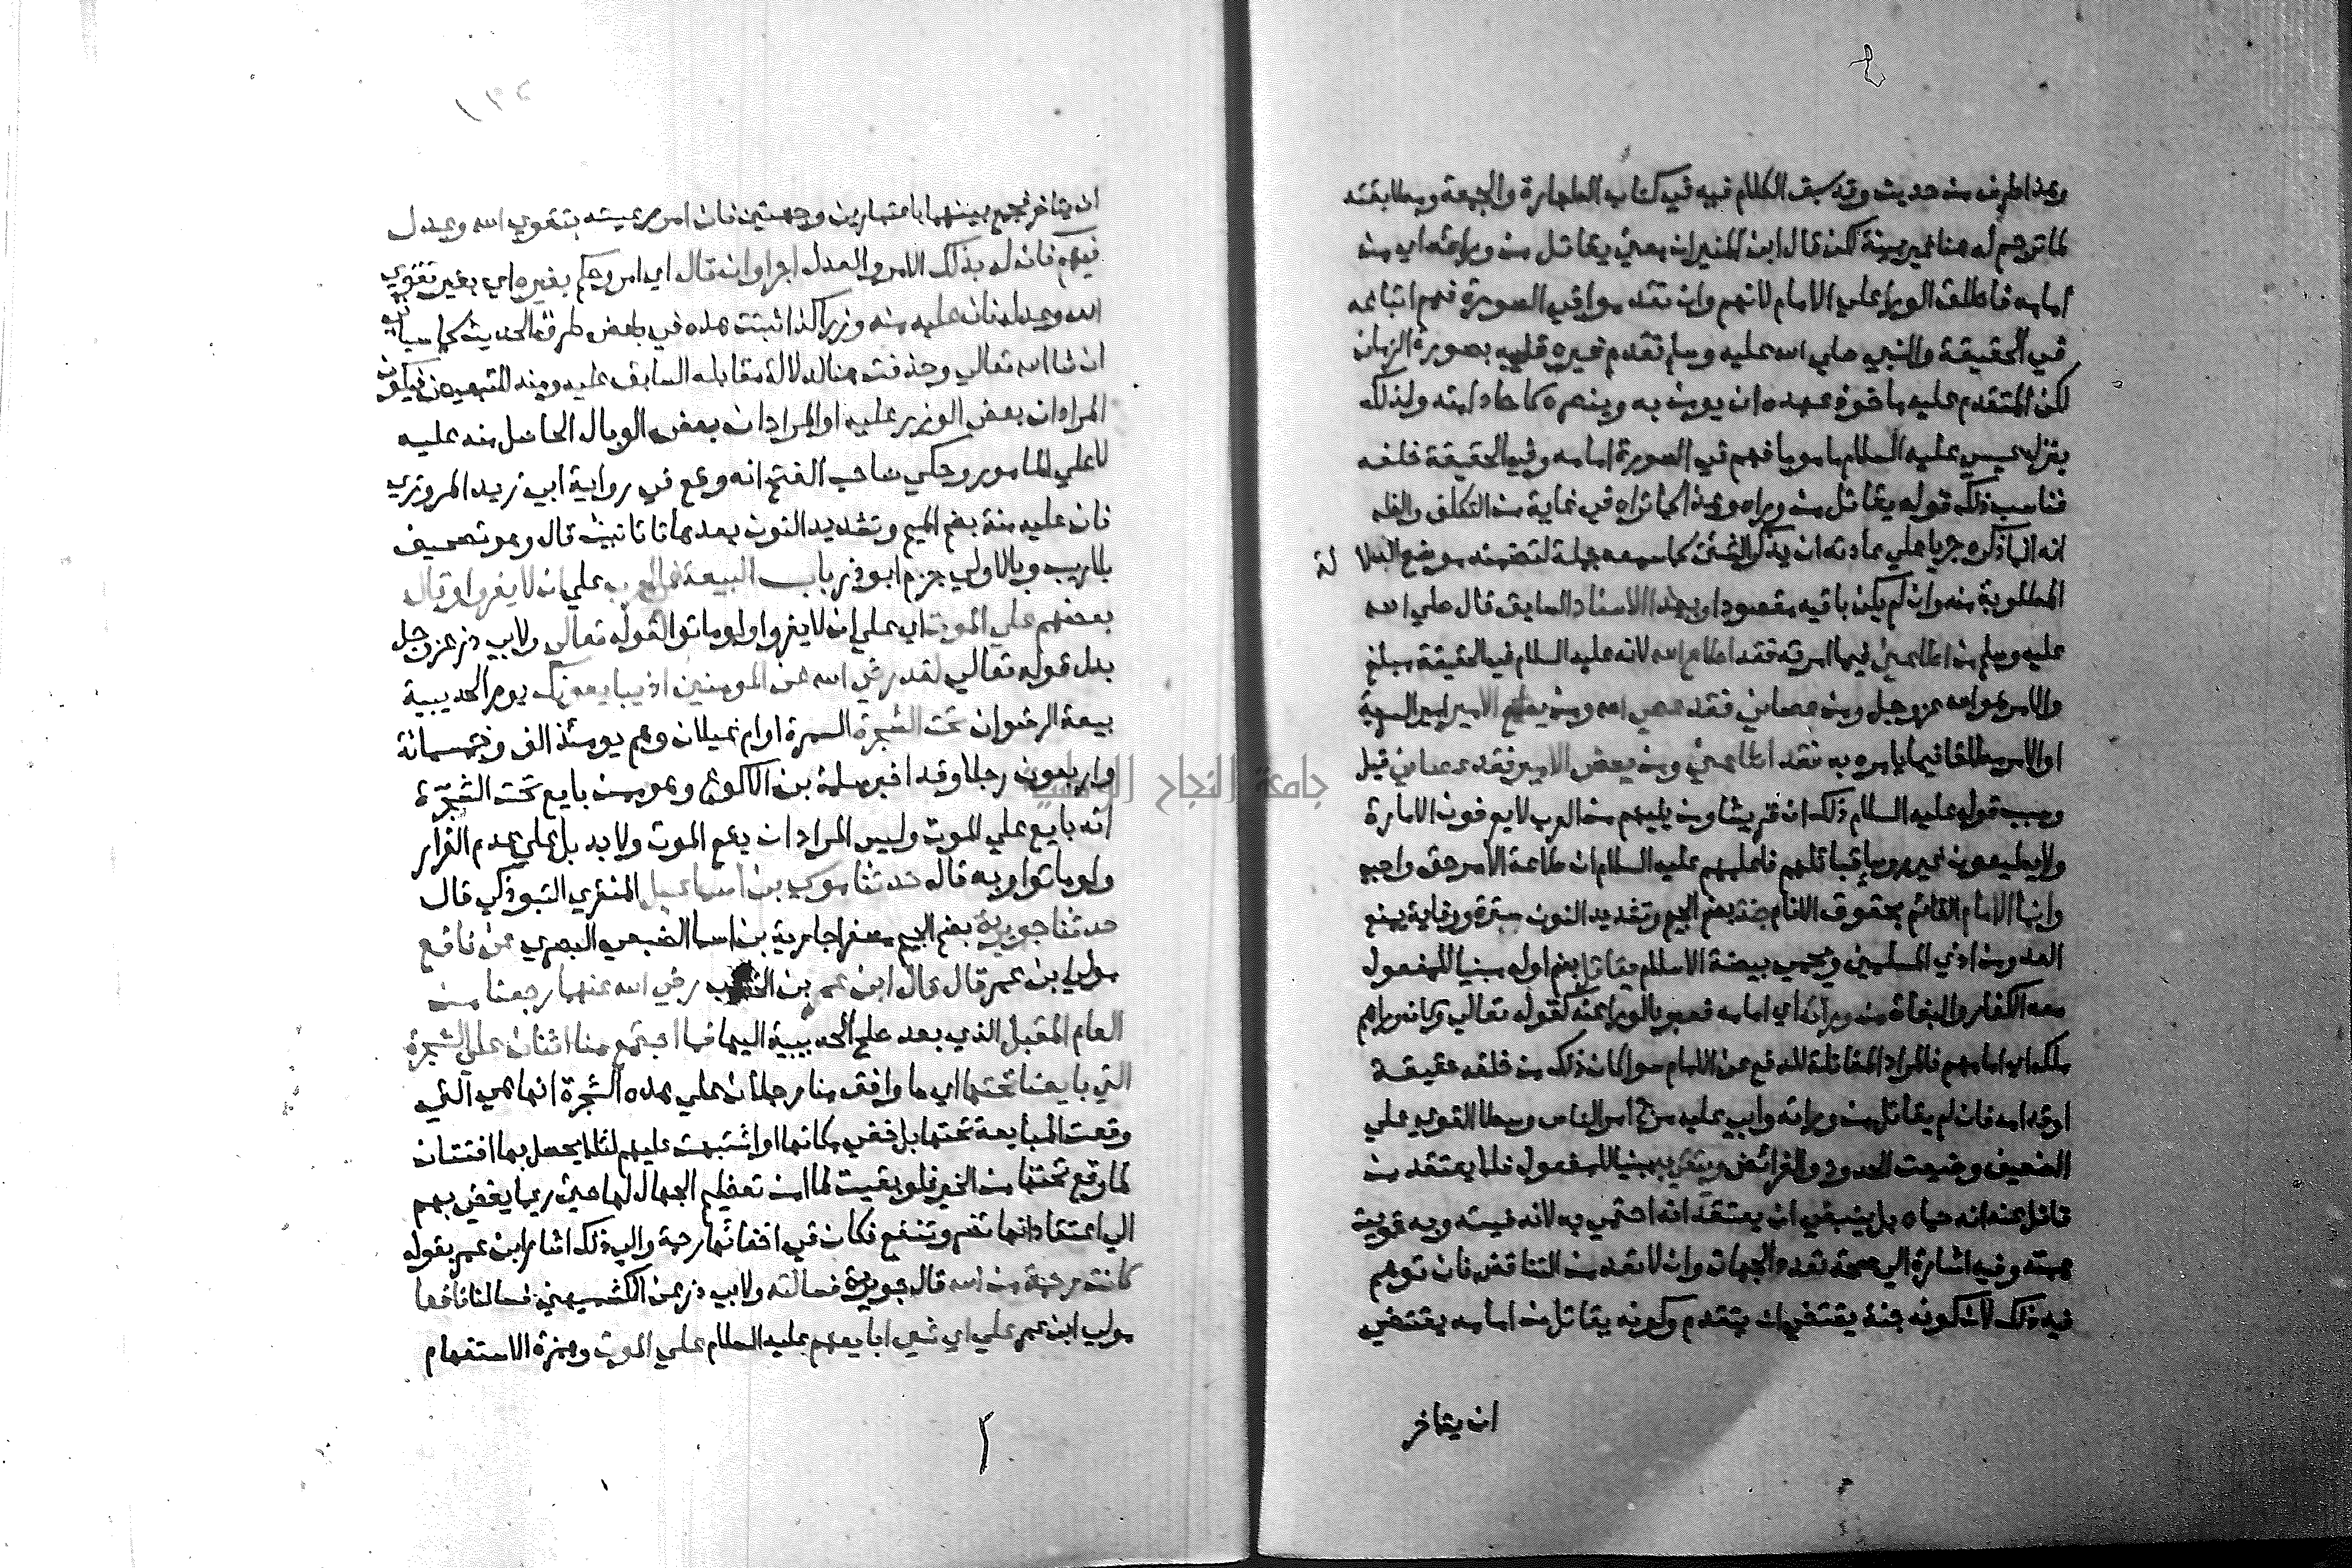 وهذا طرف من حديث وقد سبق الكلام فيه في كتاب الطهارة والجمعة ومطابقته
لما ترجم له هنا غير بينة لكن قال ابن المنير ان معنى يقاتل من ورائه اي من
امامه فاطلق الورا على الامام لانهم وان تقدموا في الصورة فهم اتباعه
في الحقيقة والنبي صلي الله عليه وسلم تقدم غيره عليه بصورة الزمان
لكن المتقدم عليه ماخوذ عهده ان يومن به وينصره كاحاد امته ولذلك
ينزل عيسي عليه السلام ماموما فهم في الصورة امامه وفي الحقيقة خلفه
فناسب ذلك قوله يقاتل من وراه وهذا كما تراه في غاية من التكلف والظا
انه انما ذكره جريا علي عادته ان يذكر الشئ كما سمعه جملة لتضمنه موضع الدلا لة
المطلوبة منه وان لم يكن باقيه مقصودا وبهذا الاسناد السابق قال صلي الله
عليه وسلم من اطاعني فيما امرته فقد اطاع الله لانه عليه السلام في الحقيقة مبلغ
والامر هو الله عزوجل ومن عصاني فقد عصي الله ومن يطع الامير امير السرية
او الامير مطلقا فيما يامره به فقد اطاعني ومن يعص الامير فقد عصاني قيل
وسبب قوله عليه السلام ذلك ان قريشا ومن يليهم من العرب لا يعرفون الامارة
ولا يطيعون غير روسا قبائلهم فاعلمهم عليه السلام ان طاعة الامر حق واجب
وانما الامام القائم بحقوق الانام جنة بضم الجيم وتشديد النون سترة ووقاية يمنع
العدو من اذي المسلمين ويحمي بيضة الاسلام يقاتل بضم اوله مبنيا للمفعول
معه الكفار والبغاة من ورائه اي امامه فعبر بالورا عنه كقوله تعالي وكان وراهم
ملك اي امامهم فالمراد المقاتلة للدفع عن الامام سوا كان ذلك من خلفه حقيقة
او قدامه فان لم يقاتل من ورائه وابي عليه مرج امر الناس وسطا القوي علي
الضعيف وضيعت الحدود والفرائض ويتقي به مبنيا للمفعول فلا يعتقد من
قاتل عنه انه حماه بل ينبغي ان يعتقد انه احتمي به لانه فيته وبه قويت
همته وفيه اشارة الي صحة تعدد الجهات وان لا تعد من التناقض فان توهم
فيه ذلك لان كونه جنة يقتضي ان يتقدم وكونه يقاتل من امامه يقتضي
ان يتاخر
ان يتاخر فجمع بينهما باعتبارين وجهتين فان امر رعيته بتقوي الله وعدل
فيهم فان له بذلك الامر والعدل اجرا وان قال اي امر وحكم بغيره اي بغير تقوي
الله وعدله فان عليه منه وزرا كذا ثبتت هذه في بعض طرق الحديث كما سياتي
ان شا الله تعالي وحذفت هنا لدلالة مقابله السابق عليه ومنه للتبعيض فيكون
المراد ان بعض الوزر عليه او المراد ان بعض الوبال الحاصل منه عليه
لا علي المامور وحكي صاحب الفتح انه وقع في رواية ابي زيد المروزي
فان عليه منة بضم الميم وتشديد النون بعدها تا تانيث قال وهو تصحيف
بلا ريب وبالاولي جزم ابو ذر باب البيعة في الحرب علي ان لا يفروا وقال
بعضهم علي الموت اي علي ان لا يفروا ولو ماتوا لقوله تعالي ولابي ذر عزوجل
بدل قوله تعالي لقد رضي الله عن المومنين اذ يبايعونك يوم الحديبية
بيعة الرضوان تحت الشجرة السمرة او ام غيلان وهم يومئذ الف وخمسمائة
واربعون رجلا وقد اخبر سلمة بن الاكوع وهو ممن بايع تحت الشجرة
انه بايع علي الموت وليس المراد ان يقع الموت ولا بد بل علي عدم الفرار
ولو ماتوا وبه قال حدثنا موسى بن اسماعيل المنقري التبوذكي قال
حدثنا جويرية بضم الجيم مصغر جارية بن اسما الضبعي البصري عن نافع
مولي ابن عمر قال قال ابن عمر بن الخطاب رضي الله عنهما رجعنا من
العام المقبل الذي بعد صلح الحديبية اليها فما اجتمع منا اثنان علي الشجرة
التي بايعنا تحتها اي ما وافق منا رجلان علي هذه الشجرة انها هي التي
وقعت المبايعة تحتها بل خفي مكانها او اشتبهت عليهم لئلا يحصل بها افتتان
لما وقع تحتها من الخير فلو بقيت لما امن تعظيم الجهال لها حتي ربما يفضي بهم
الي اعتقاد انها تضر وتنفع فكان في اخفائها رحمة والي ذلك اشار ابن عمر بقوله
كانت رحمة من الله قال جويرية فسالته ولابي ذر عن الكشميهني فسالنا نافعا
مولي ابن عمر علي اي شي ابايعهم عليه السلام علي الموت وهمزة الاستفهام
جامعة النجاح الوطنية